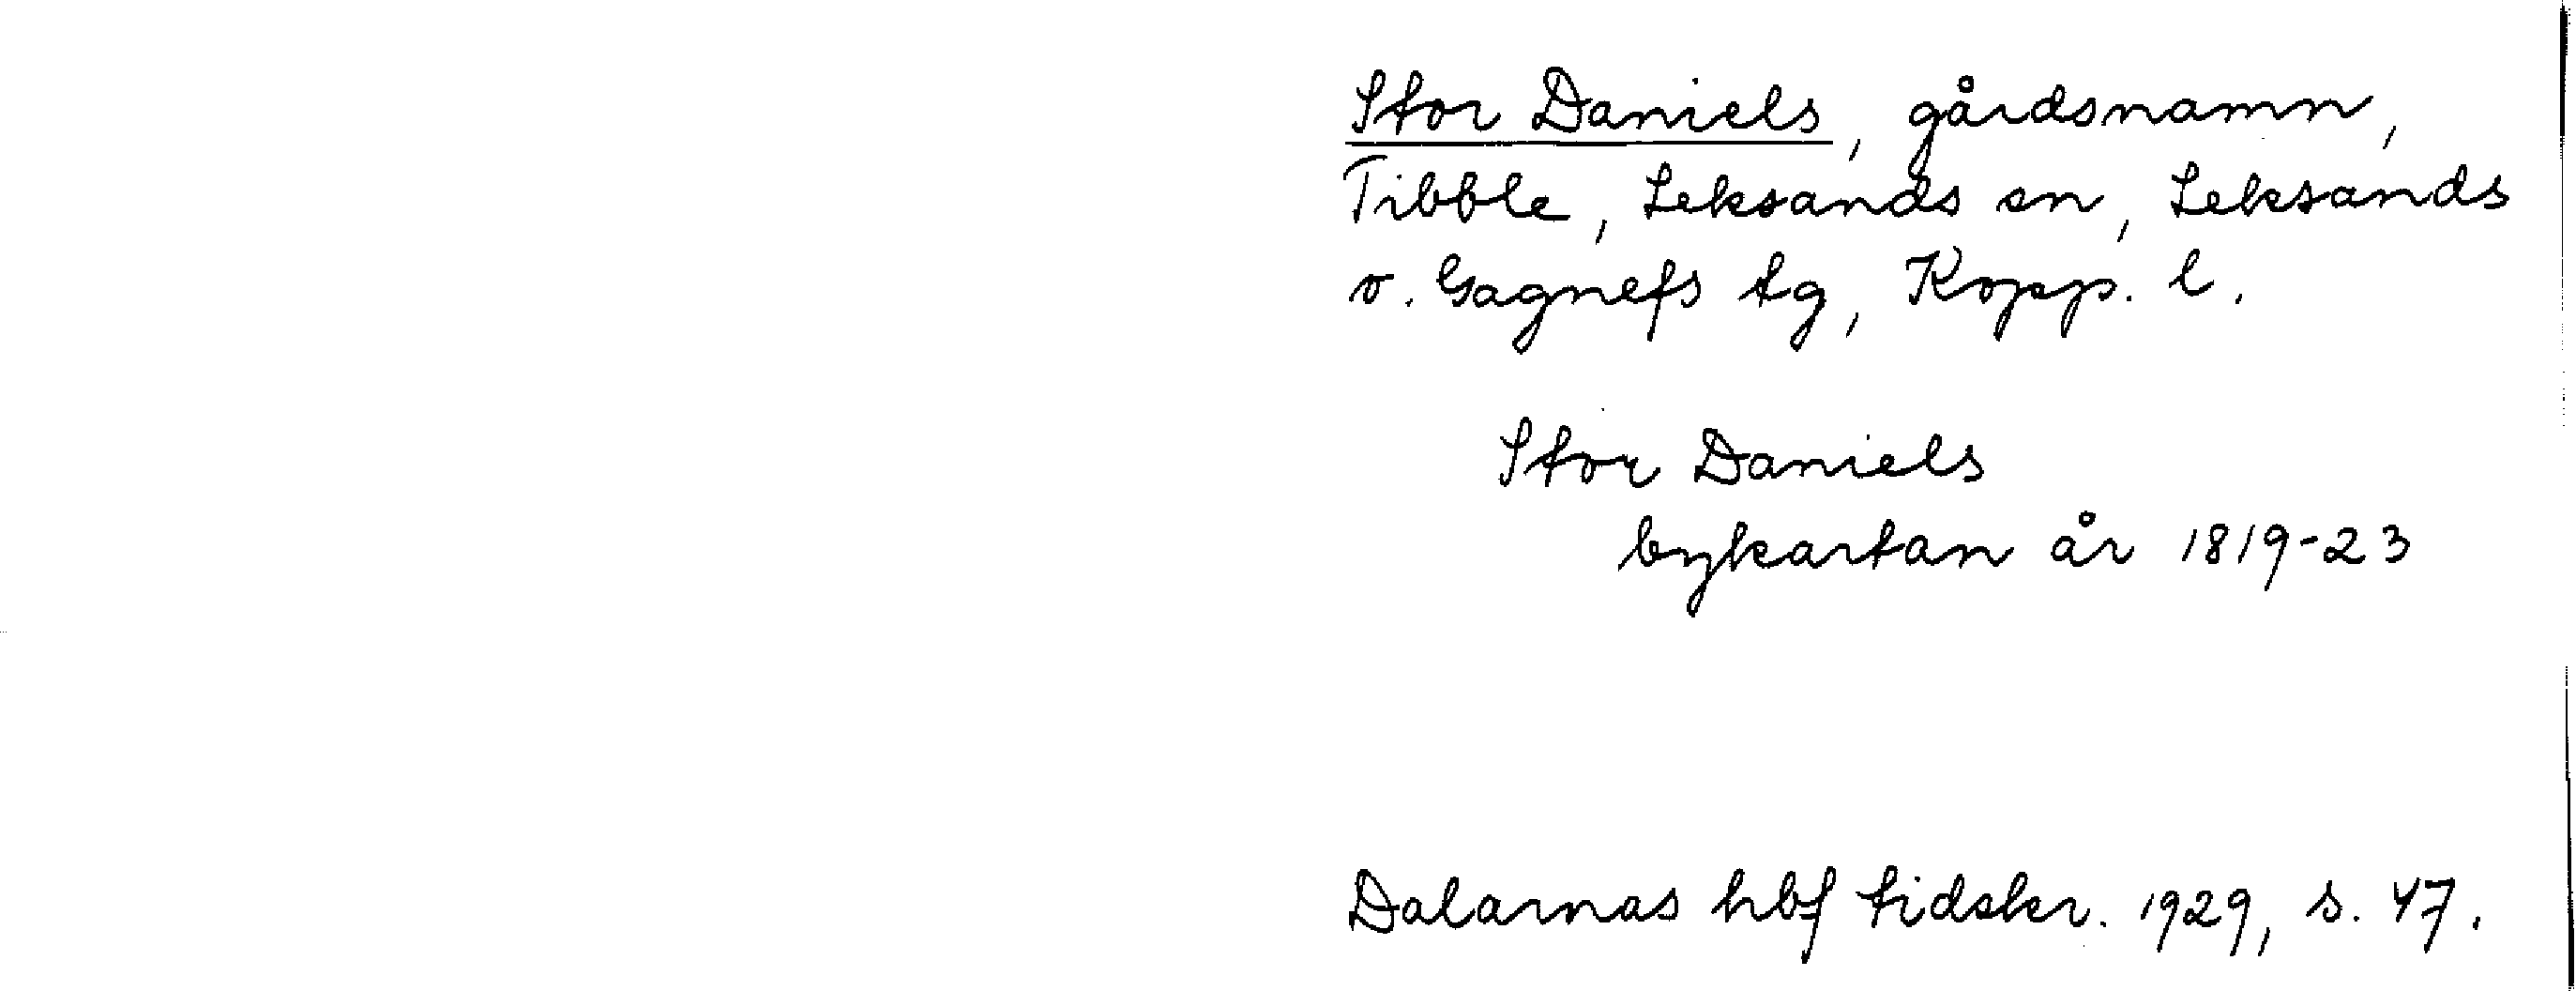 Stor Daniels, gårdsnamn,
Tibble, Leksands sn, Leksands
o. Gagnefs tg, Kopp. l.
Stor Daniels
bykartan år 1819-23
Dalarnas hbf tidskr. 1929, s. 47.